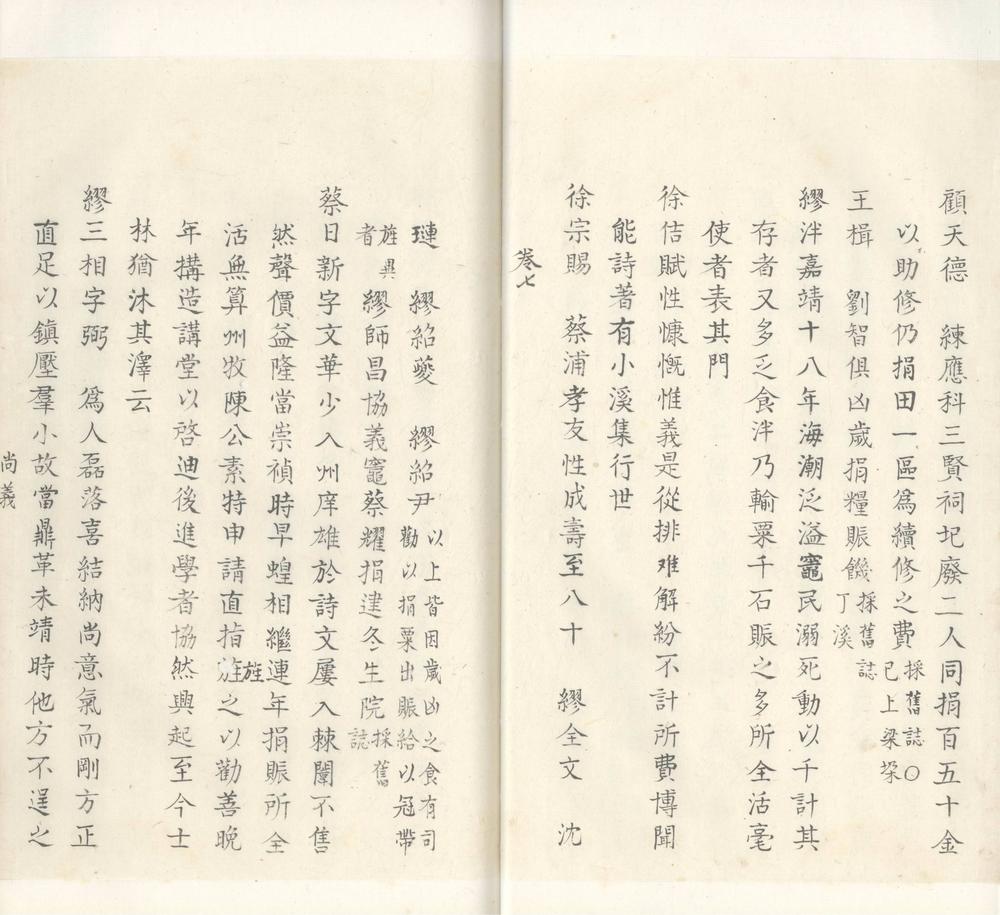 顧天德　練應科三賢祠圮廢二人同捐百五十金
以助修仍捐田一區爲續修之費採舊誌〇已上梁垛
王楫　劉智俱凶歲捐糧賑饑採舊誌丁溪
繆泮嘉靖十八年海潮泛溢竈民溺死動以千計其
存者又多乏食泮乃輸粟千石賑之多所全活毫
使者表其門
徐佶賦性慷慨惟義是從排难解紛不計所費博聞
能詩著有小溪集行世
徐宗賜　蔡浦孝友性成壽至八十　繆全文　沈
卷七
璉　繆紹夔　繆紹尹以上皆因歲凶之食有司勸以捐粟出賑給以冠帶
旌異者繆師昌協義竈蔡耀捐建冬生院採舊誌
蔡日新字文華少入州庠雄於詩文屢入棘闈不售
然聲價益隆當崇禎時早蝗相繼連年捐賑所全
活無算州牧陳公素特申請直指旌之以勸善晚
旌
年搆造講堂以啓迪後進學者協然興起至今士
林猶沐其澤云
繆三相字弼　爲人磊落喜結納尚意氣而剛方正
直足以鎮壓羣小故當鼎革未靖時他方不逞之
尚義